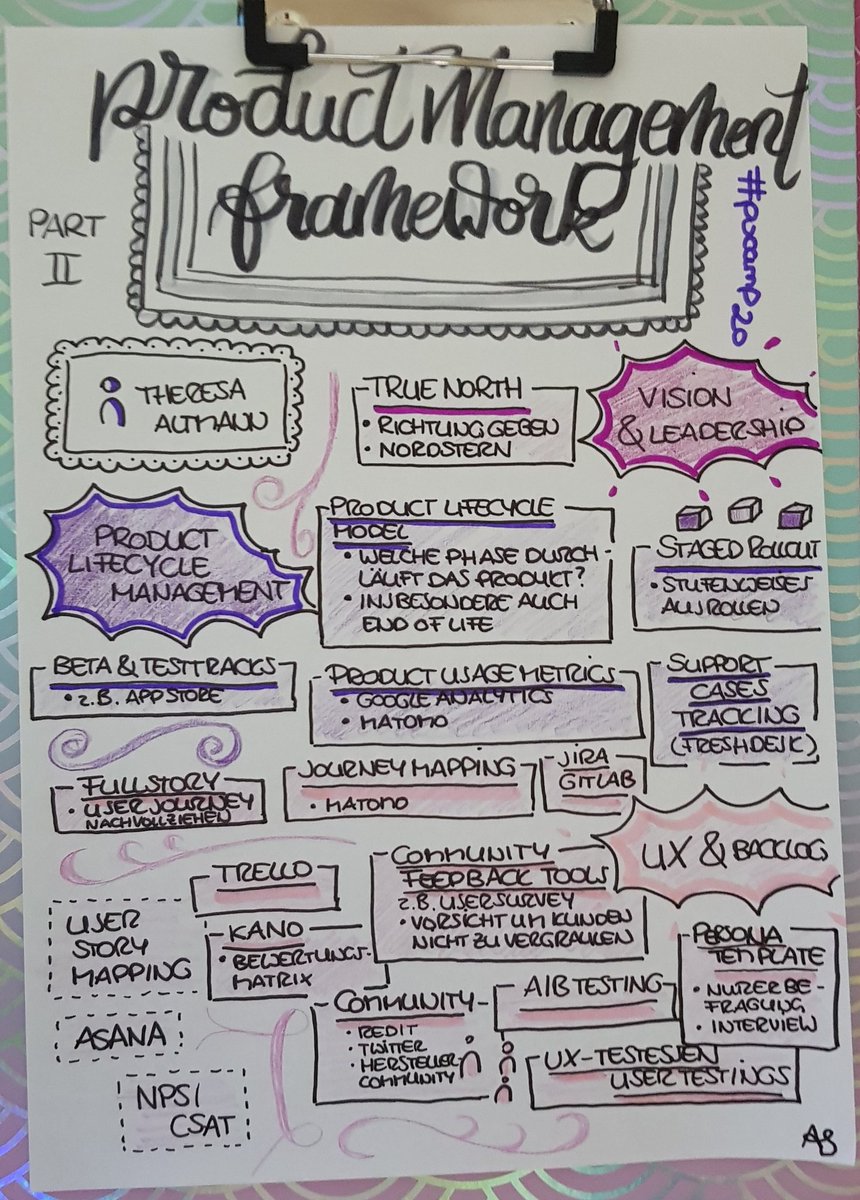 Product Management
framework
PART
II
#pxcamp20
THERESA
ALTMANN
TRUE NORTH
• RICHTUNG GEBEN
• NORDSTERN
VISION
& LEADERSHIP
PRODUCT
LIFECYCLE
MANAGEMENT
PRODUCT LIFECYCLE
MODEL
• WELCHE PHASE DURCH-
LÄUFT DAS PRODUKT?
• INSBESONDERE AUCH
END OF LIFE
STAGED ROLLOUT
• STUFENWEISES
AUSROLLEN
BETA & TESTTRACKS
• z.B. APP STORE
PRODUCT USAGE METRICS
• GOOGLE ANALYTICS
• MATOMO
SUPPORT
CASES
TRACKING
(FRESHDESK)
FULLSTORY
• USER JOURNEY
NACHVOLLZIEHEN
JOURNEY MAPPING
• MATOMO
JIRA
GITLAB
UX & BACKLOG
TRELLO
COMMUNITY
FEEDBACK TOOLS
z.B. USERSURVEY
• VORSICHT UM KUNDEN
NICHT ZU VERGRAULEN
USER
STORY
MAPPING
KANO
• BEWERTUNGS-
MATRIX
PERSONA
TEMPLATE
• NUTZER BE-
FRAGUNG
• INTERVIEW
ASANA
COMMUNITY
• REDIT
• TWITTER
• HERSTELLER
COMMUNITY
A/B TESTING
UX-TESTESSEN
USER TESTINGS
NPS/
CSAT
AS